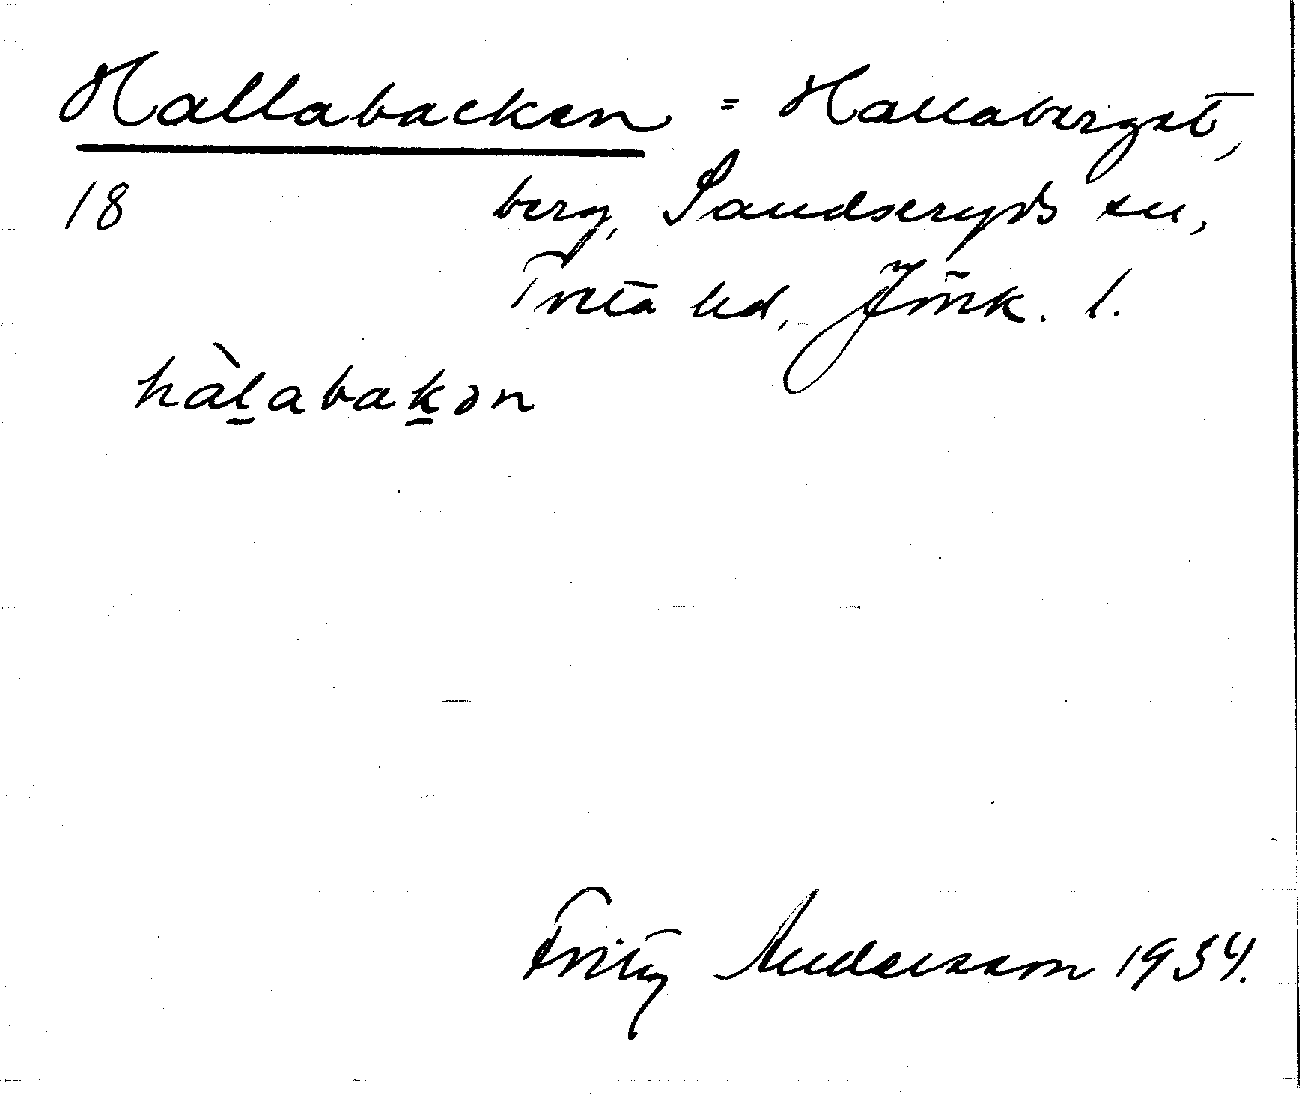 Hallabacken = Hallaberget,
18 berg, Sandseryds sn,
Tveta hd, Jönk. l.
hàl̲abak̲ən
Fritz Andersson 1934.